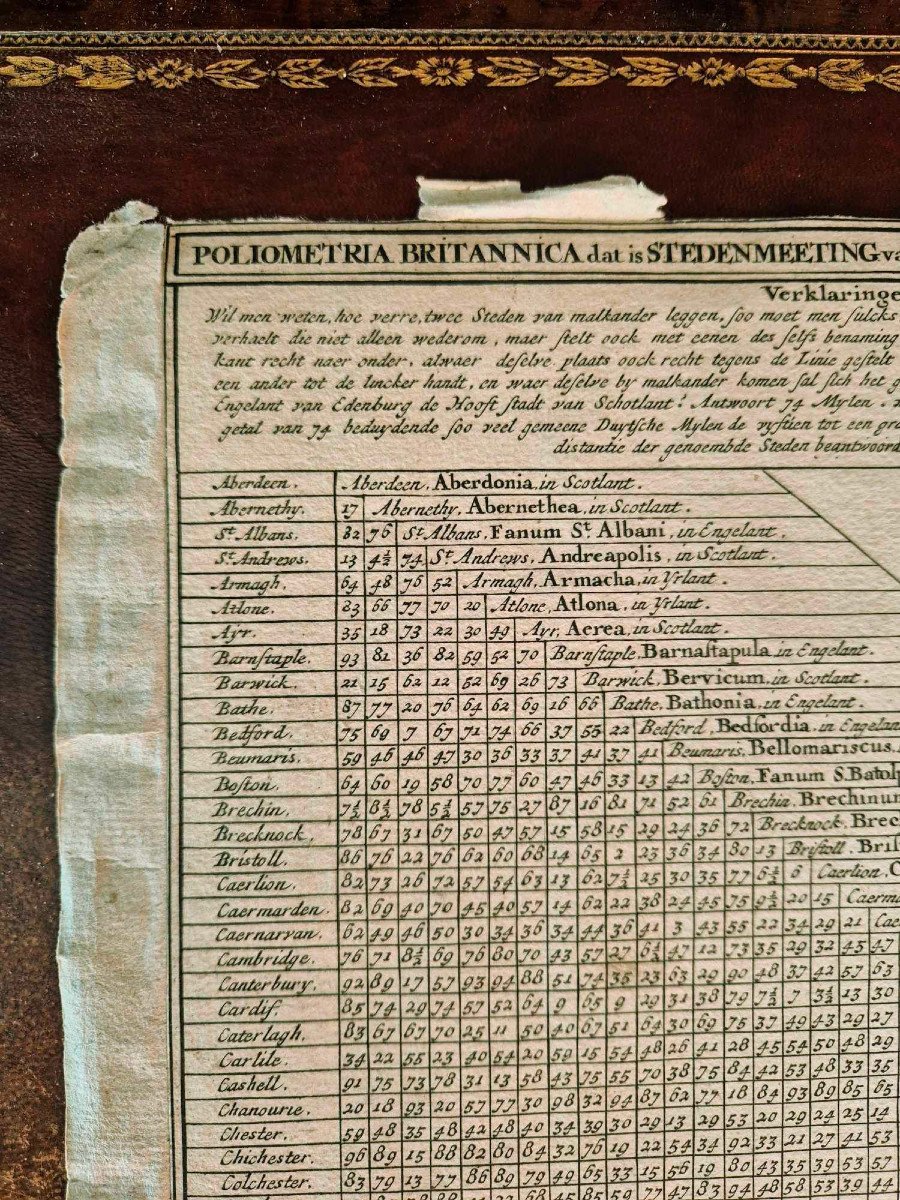 POLIOMETRIA BRITANNICA dat is STEDENMEETING
Verklaringe
Wil men weten, hoe verre, twee Steden van malkander leggen, soo moet men sulcks
verhaelt die niet alleen wederom, maer stelt oock met eenen des selfs benaming
kant recht naer onder, alwaer deselve plaats oock recht tegens de Linie gestelt
een ander tot de lincker handt, en waer deselve by malkander komen sal sich het
Engelant van Edenburg de Hooft stadt van Schotlant? Antwoort 74 Mylen.
getal van 74 beduydende soo veel gemeene Duytsche Mylen de vystien tot een
distantie der genoembde Steden beantwoord
Aberdeen. Aberdeen, Aberdonia, in Scotlant.
Abernethy. 17 Abernethy, Abernethea, in Scotlant.
St. Albans. 82 76 St. Albans, Fanum St. Albani, in Engelant.
St. Andrews. 13 4½ 74 St. Andrews, Andreapolis, in Scotlant.
Armagh. 64 48 76 52 Armagh, Armacha, in Yrlant.
Atlone. 83 66 77 70 20 Atlone, Atlona, in Yrlant.
Ayr. 35 18 73 22 30 49 Ayr, Aerea, in Scotlant.
Barnstaple. 93 81 36 82 59 52 70 Barnstaple, Barnastapula, in Engelant.
Barwick. 21 15 62 12 52 69 26 73 Barwick, Bervicum, in Scotlant.
Bathe. 87 77 20 76 64 62 69 16 66 Bathe, Bathonia, in Engelant.
Bedford. 75 69 7 67 71 74 66 37 55 22 Bedford, Bedfordia, in Engelan
Beumaris. 59 46 46 47 30 36 33 37 41 37 41 Beumaris, Bellomariscus,
Boston. 64 60 19 58 70 77 60 47 46 33 13 42 Boston, Fanum S. Batol
Brechin. 7½ 8½ 78 5½ 57 75 27 87 16 81 71 52 61 Brechin, Brechinu
Brecknock. 78 67 31 67 50 47 57 15 58 15 29 24 36 72 Brecknock, Brec
Bristoll. 86 76 22 76 62 60 68 14 65 2 23 36 34 80 13 Bristoll, Bris
Caerlion. 82 73 26 72 57 54 63 13 62 7½ 25 30 35 77 6½ 6 Caerlion, C
Caermarden. 82 69 40 70 45 40 57 14 62 22 38 24 45 75 9½ 20 15 Caerm
Caernarvan. 62 49 46 50 30 34 36 34 44 36 41 3 43 55 22 34 29 21 Cae
Cambridge. 76 71 8½ 69 76 80 70 43 57 27 6½ 47 12 73 35 29 32 45 47
Canterbury. 92 89 17 57 93 94 88 51 74 35 23 63 29 90 48 37 42 57 63
Cardif. 85 74 29 74 57 52 64 9 65 9 29 31 38 79 7½ 7 3½ 13 30
Caterlagh. 83 67 67 70 25 11 50 40 67 51 64 30 69 75 37 49 43 29 27
Carlile. 34 22 55 23 40 54 20 59 15 54 48 26 41 28 45 54 50 48 29
Cashell. 91 75 73 78 31 13 58 43 75 55 70 38 75 84 42 53 48 33 35
Chanourie. 20 18 93 20 57 77 30 98 32 94 87 62 77 18 84 93 89 85 65
Chester. 59 48 35 48 42 48 40 34 39 30 29 13 29 53 20 29 24 25 14
Chichester. 96 89 15 88 82 80 84 32 76 19 22 54 34 92 33 21 27 41 53
Colchester. 83 79 13 77 86 89 79 49 65 33 15 56 19 80 43 35 39 53 57